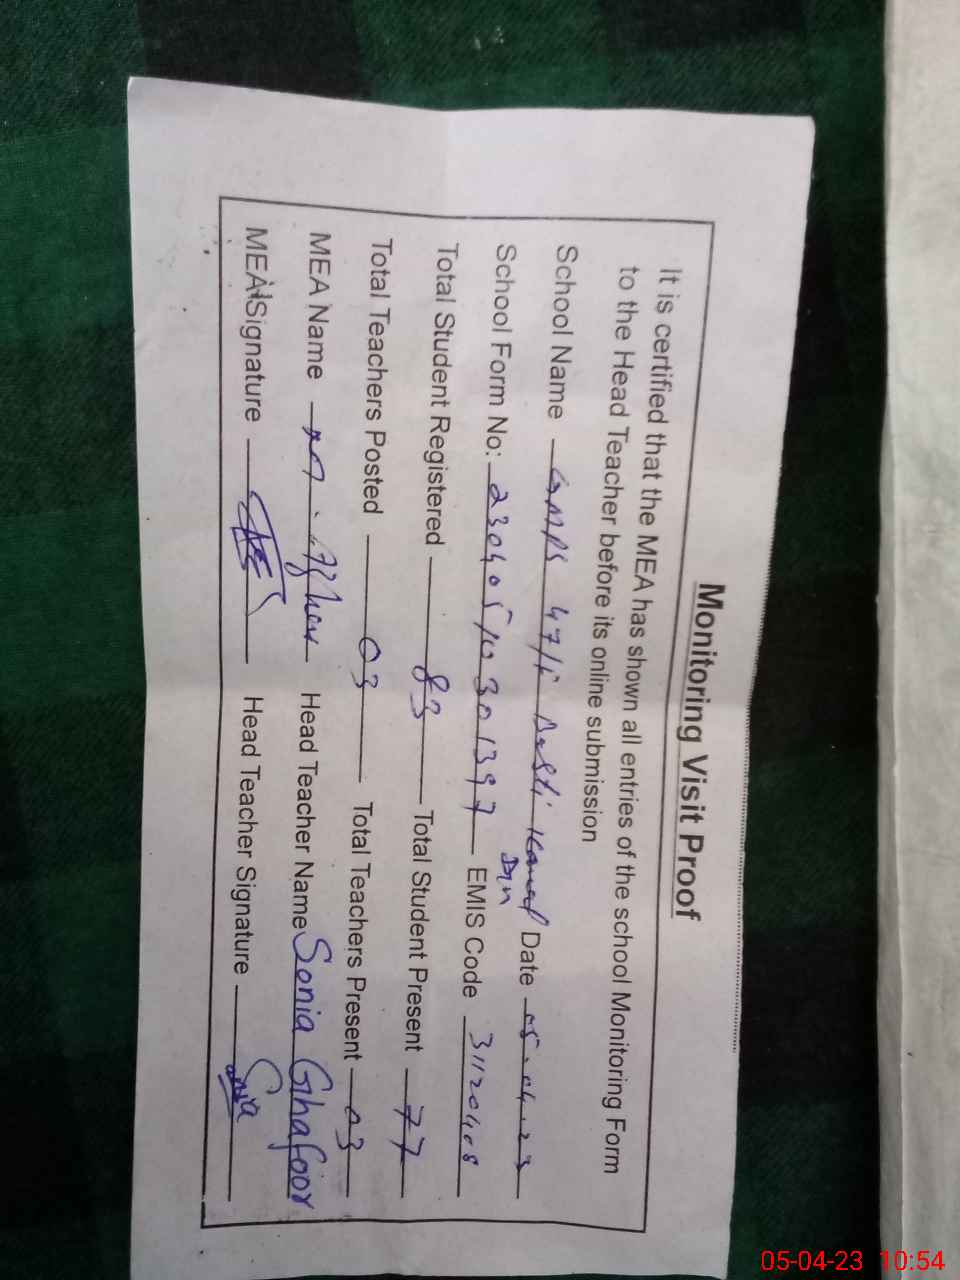 Monitoring Visit Proof
It is certified that the MEA has shown all entries of the school Monitoring Form
to the Head Teacher before its online submission
School Name GMPS 47/ Basti Kamal Din Date 05.04.23
School Form No: 230405/10301397 EMIS Code 31120408
Total Student Registered 83 Total Student Present 77
Total Teachers Posted 03 Total Teachers Present 03
MEA Name Head Teacher Name Sonia Ghafoor
MEA Signature Head Teacher Signature
05-04-23 10:54